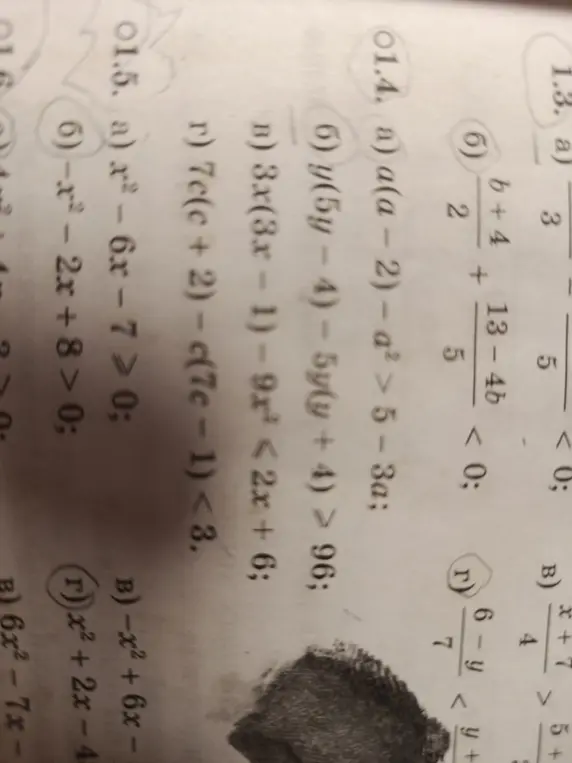 1.3. а) — 3 — 5 < 0; в) x + 7 / 4 > 5 +
б) b + 4 / 2 + 13 − 4b / 5 < 0; г) 6 − y / 7 < y +
О1.4. а) a(a − 2) − a² > 5 − 3a;
б) y(5y − 4) − 5y(y + 4) > 96;
в) 3x(3x − 1) − 9x² < 2x + 6;
г) 7c(c + 2) − c(7c − 1) < 3.
О1.5. а) x² − 6x − 7 ⩾ 0; в) −x² + 6x −
б) −x² − 2x + 8 > 0; г) x² + 2x − 4
О1.6. в) 6x² − 7x −